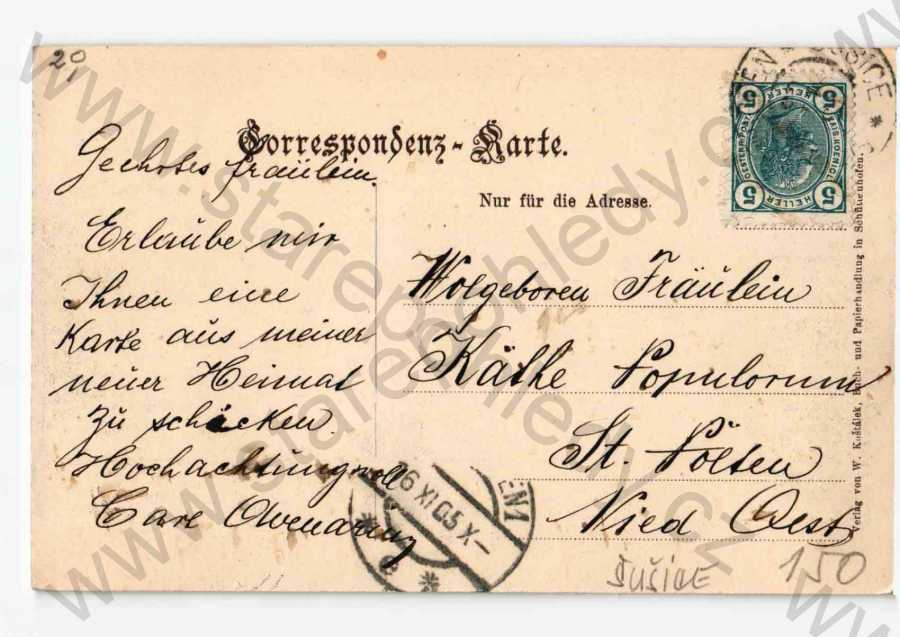 20,
Correspondenz-Karte.
Nur für die Adresse.
Geehrtes Fräulein.
Erlaube mir
Ihnen eine
Karte aus meiner
neuer Heimat
zu schicken.
Hochachtungvoll
Carl
Wolgeboren Fräulein
Käthe Populorum
St. Pölten
Nied Oest
ŠUŠICE
150
5 5
5 5
HELLER HELLER
SUŠICE
16 XI 05 X-
Verlag von W. Košťálek, Buch- und Papierhandlung in Schüttenhofen.
www.starepohledy.cz